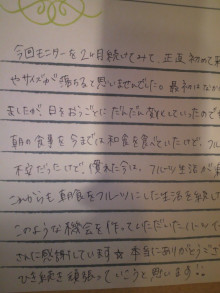 今回モニターを2ヶ月続けてみて、正直 初めて
やサイズが落ちると思いませんでした。最初はなか
ましたが、日をおうごとにだんだん変化していったので
朝の食事を今までは和食を食べていたけど、フル
不安だったけど、慣れた今は、フルーツ生活が
これからも朝食をフルーツにした生活を続して
このような機会を作っていただいた
さんに感謝しています☆ 本当にありがとうござ
ひき続き頑張っていこうと思います!!